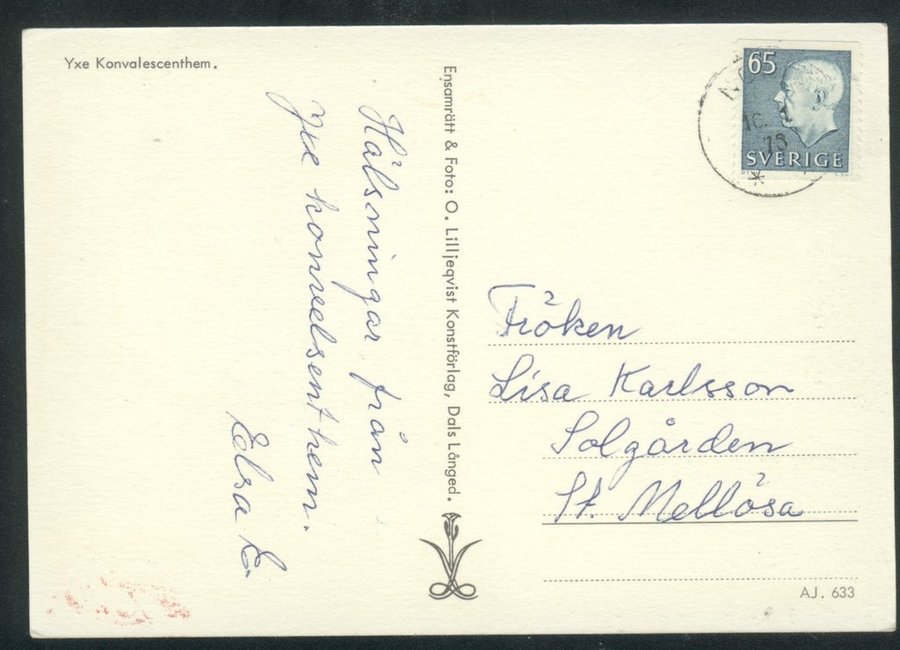 Yxe Konvalescenthem.
Hälsningar från
Yxe konvelsenthem.
Edsa E
Ensamrätt & Foto: O. Lilljeqvist Konstförlag, Dals Långed.
65
SVERIGE
16.
Fröken
Lisa Karlsson
Solgården
St. Mellösa
AJ. 633